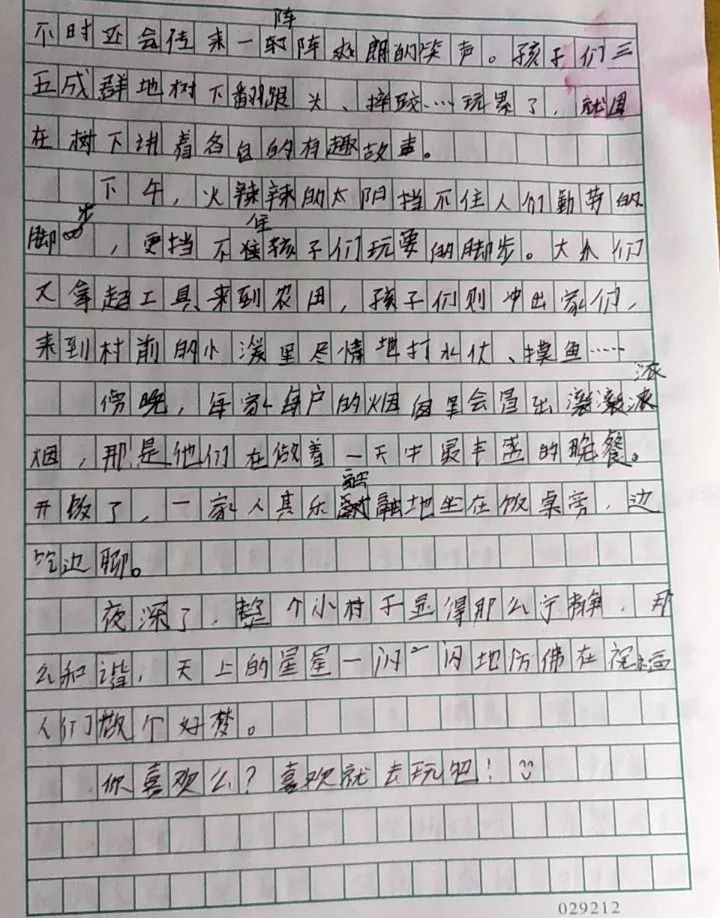 不时还会传来一阵阵爽朗的笑声。孩子们三
五成群地树下翻跟头、摔跤…玩累了，就围
在树下讲着各自的有趣故事。
下午，火辣辣的太阳挡不住人们勤劳的
脚步，更挡不住孩子们玩耍的脚步。大人们
又拿起工具来到农田，孩子们则冲出家们，
来到村前的小溪里尽情地打水仗、摸鱼……
傍晚，每家每户的烟囱里会冒出滚滚浓
烟，那是他们在做着一天中最丰盛的晚餐。
开饭了，一家人其乐融融地坐在饭桌旁，边
吃边聊。
夜深了，整个小村子显得那么宁静，那
么和谐，天上的星星一闪一闪地仿佛在祝福
人们做个好梦。
你喜欢么？喜欢就去玩吧！
029212